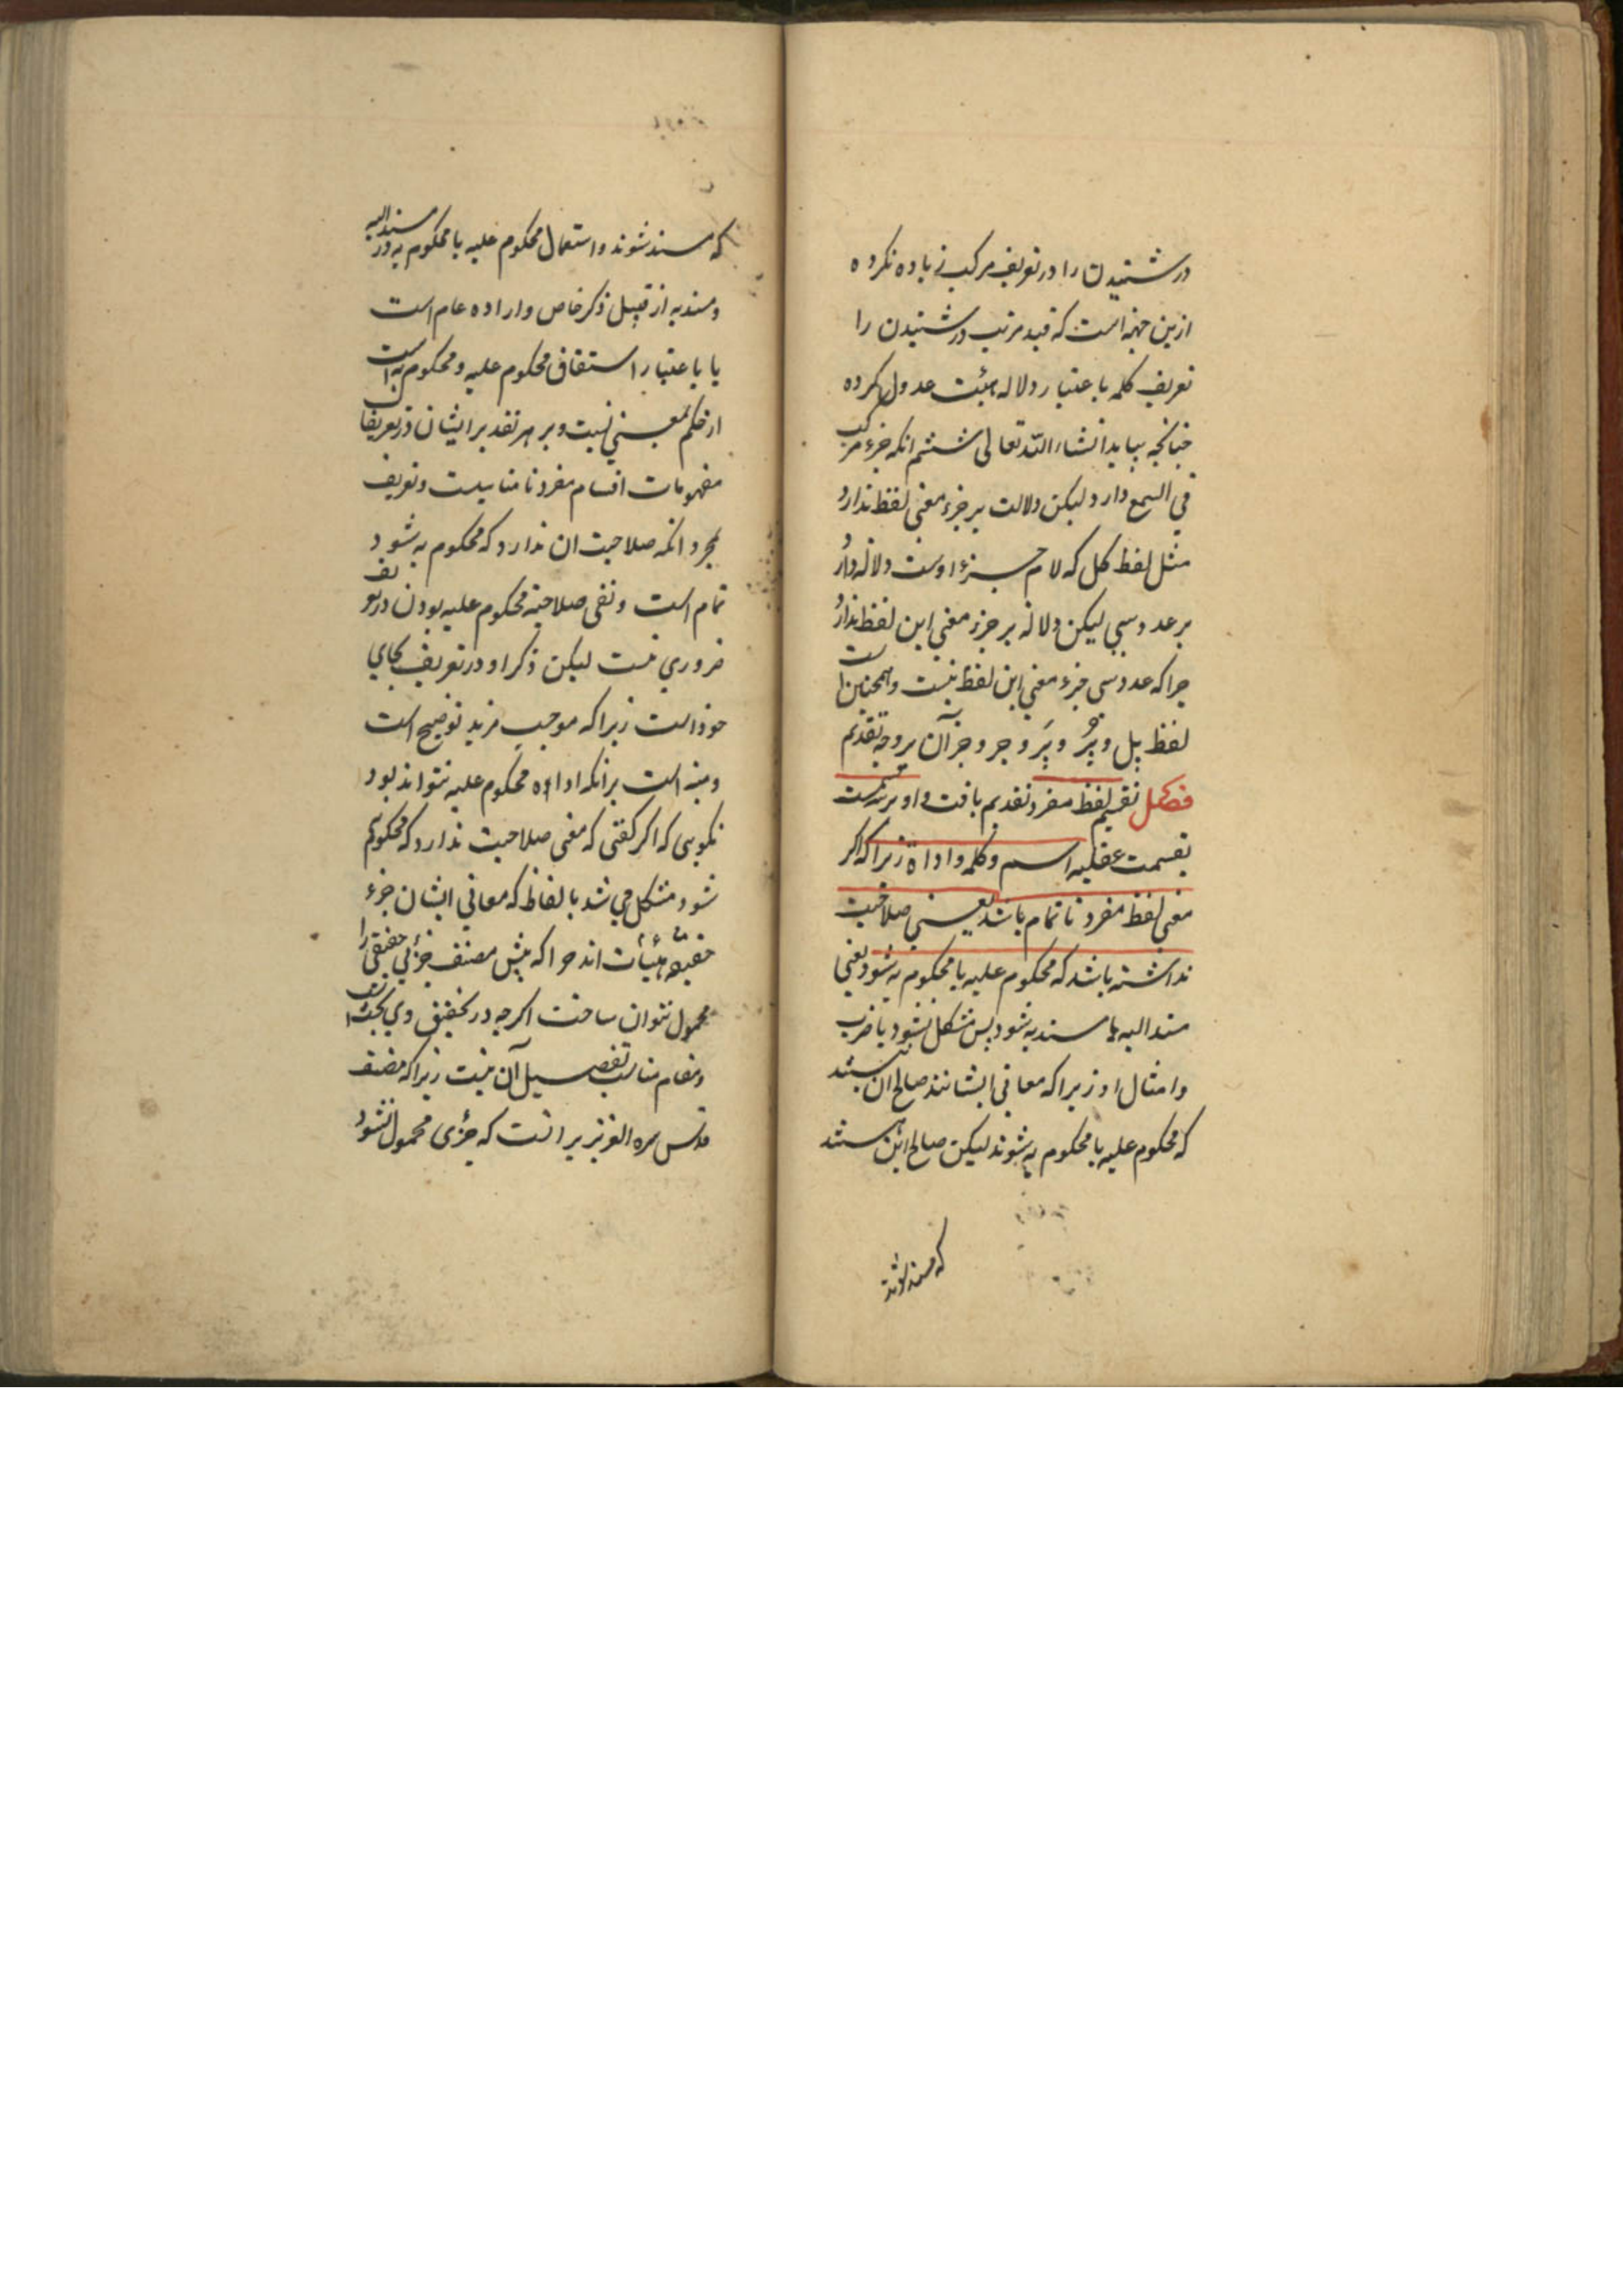 در شنیدن را در تعریف مرکب زیاده نکرده
ازین جهة است که قید مرتب در شنیدن را
تعریف کلمه با عتبار دلاله هیئت عدول کرده
چنانچه بیاید انشاء الله تعالی ششم انکه جزء مرکب
في السمع دارد لیکن دلالت بر جزء معني لفظ ندارد
مثل لفظ کل که لام جزء اوست دلاله دارد
بر عدد سي لیکن دلاله بر جزء معني این لفظ ندارد
چرا که عدد سي جزء معني این لفظ نیست و همچنین است
لفظ پل و پر و پر و جر و جزآن بر وجه تقدیم
فصل تقسیم لفظ مفرد تقدیم یافت و او
بقسمت عقلیه اسم و کلمه و اداة زیرا که اکر
معني لفظ مفرد ناتمام باشد یعني صلاحیت
نداشته باشد که محکوم علیه یا محکوم به شود یعني
مسند الیه یا مسند به شود پس مشکل نشود با ضرب
و امثال او زیرا که معاني ایشان صالح ان نیستند
که محکوم علیه یا محکوم به شوند لیکن صالح این هستند
که مسند شوند
که مسند شوند و استعمال محکوم علیه یا محکوم به در مسند الیه
و مسند به از قبیل ذکر خاص و اراده عام است
یا با عتبار اشتقاق محکوم علیه و محکوم به است
از حکم بمعني نسبت و بر هر تقدیر ایشان در تعریفات
مفهومات اقسام مفرد نامناسبت و تعریف
بمجرد انکه صلاحیت ان ندارد که محکوم به شود
تمام است و نفي صلاحیة محکوم علیه بودن در تعریف
ضروري نیست لیکن ذکر او در تعریف بجاي
خود است زیرا که موجب مزید توضیح است
و مبنه است بر انکه اداة محکوم علیه نتواند بود
نکویي که اکر کفتي که معني صلاحیت ندارد که محکوم به
شود مشکل مي شد بالفاظ که معاني ایشان جزء
حقیقه هیئات اند چرا که پیش مصنف جزئي حقیقي را
محمول نتوان ساخت اکرچه در تحقیق وي بحث است
و مقام مناسب تفصیل آن نیست زیرا که مصنف
قدس سره العزیز برانست که جزئي محمول نشود